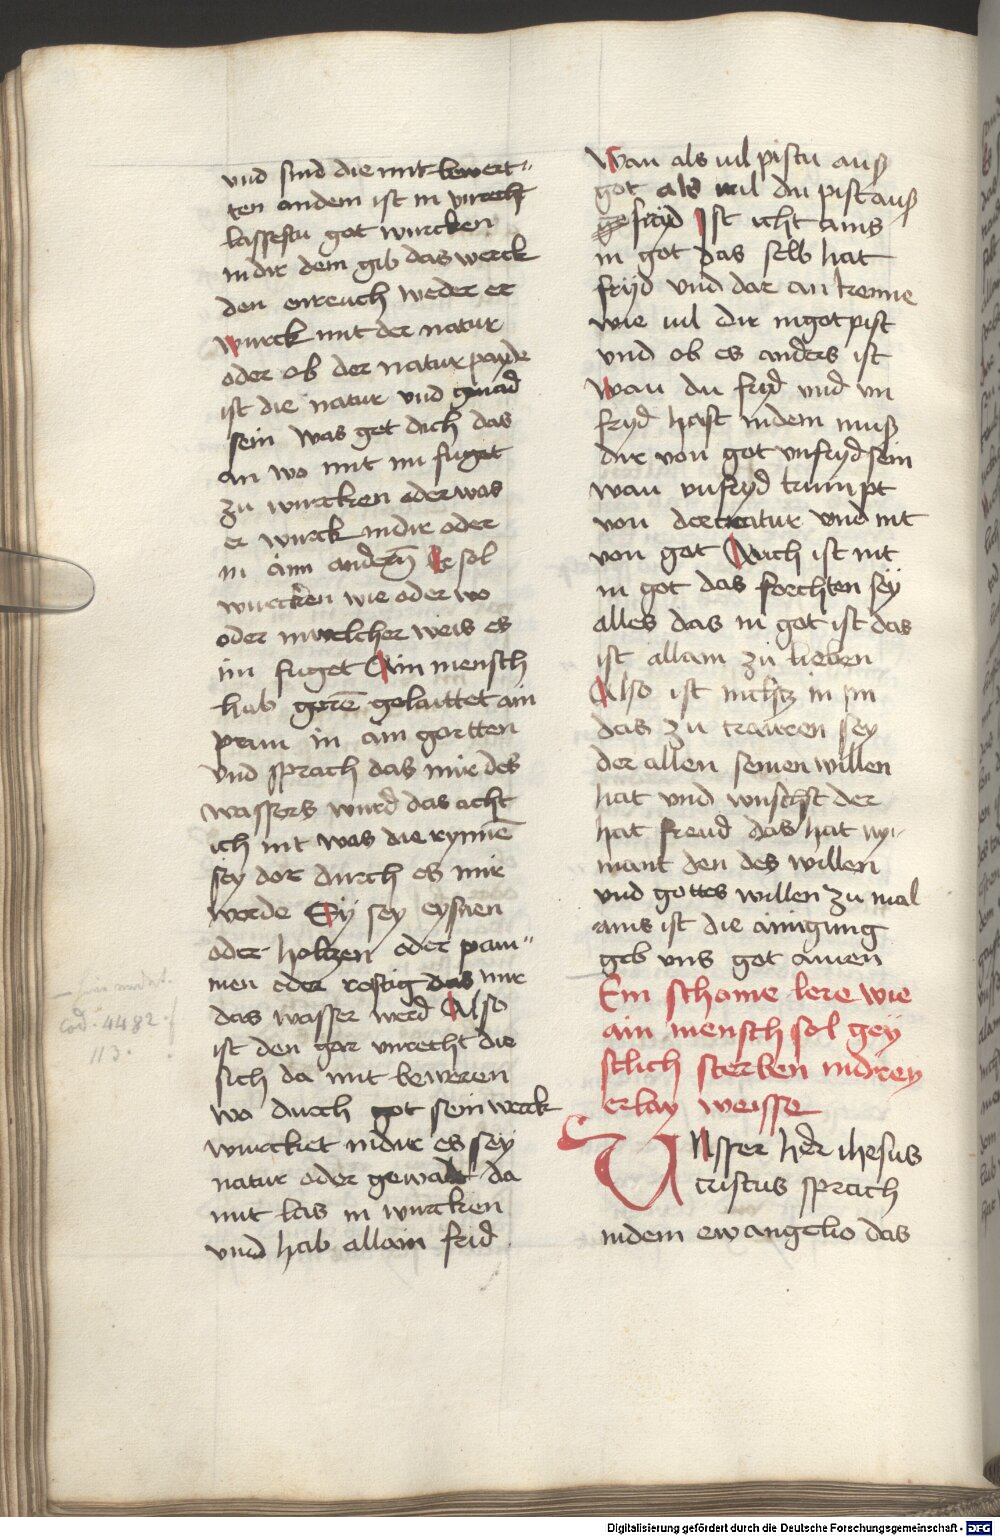 vnd sind die mit bewert"
ten andern ist in vnrecht
lassestu got wurcken
in dir dem gib das werck
den enreuch weder er
wurck mit der natur
oder ob der natur payde
ist die natur vnd gnad
sein was get dich das
an wo mit im fuget
zu wurcken oder was
er wurck in dir oder
in aim andern Er sol
wurcken wie oder wo
oder in welcher weis es
im fuget Ain mensch
hab geren gelaittet ain
prun in ain gartten
vnd sprach das mir des
wassers wurd das acht
ich nit was die rynnen
sey dor durch es mir
werde Ey sey eysnen
oder holtzen oder pain"
nen oder rostig das mir
das wasser werd Also
ist den gar vnrecht die
sich da mit beweren
wo durch got sein werck
wurcket in dir es sey
natur oder gewalt da
mit las in wurcken
vnd hab allain frid
Wan als uil pistu auß
got als uil du pist auß
frijd Ist icht ains
in got das selb hat
frijd vnd dar an kenne
wie uil dir in got pist
vnd ob es anders ist
wan du frijd vnd vn
frijd hast indem muß
dir von got vnfrijd sein
wan vnfrijd kumpt
von der creatur vnd nit
von got Auch ist nit
in got das forchten sey
alles das in got ist das
ist allain zu lieben
Also ist nichtz in im
das zu trauren sey
der allen seinen willen
hat vnd wuschst der
hat freud das hat ny-
mant den des willen
vnd gottes willen zu mal
ains ist die ainigung
geb vns got amen
Ein schoine lere wie
ain mensch sol gey
stlich sterben in drey
erlay weisse
Vnsser her ihesus
cristus sprach
indem ewangelio das
Cod. 4482.
113.
Digitalisierung gefördert durch die Deutsche Forschungsgemeinschaft - DFG